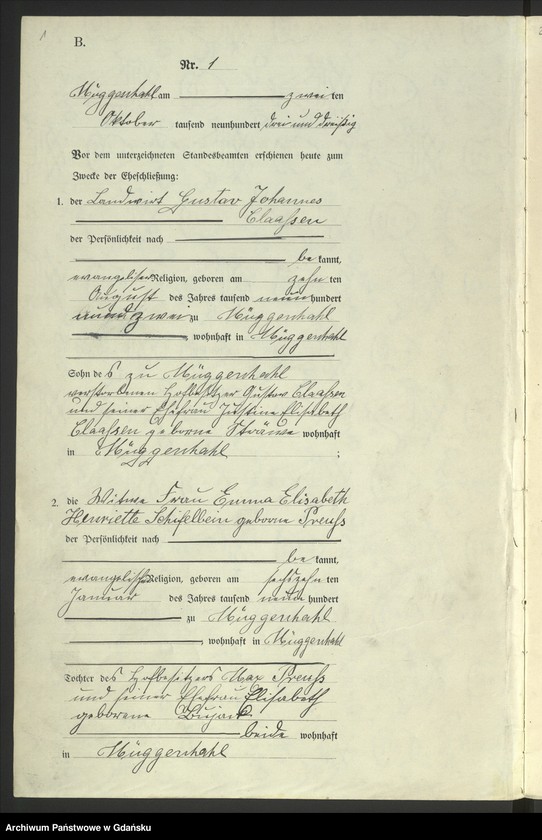 1
B.
Nr. 1
Müggenhahl am zwei ten
Oktober tausend neunhundert drei und dreißig
Vor dem unterzeichneten Standesbeamten erschienen heute zum
Zwecke der Eheschließung:
1. der Landwirt Gustav Johannes
Claaßen
der Persönlichkeit nach
be kannt,
evangelischer Religion, geboren am zehn ten
August des Jahres tausend neun hundert
und zwei zu Müggenhahl
, wohnhaft in Müggenhahl
Sohn des zu Müggenhahl
verstorbenen Hofbesitzer Gustav Claaßen
und seiner Ehefrau Justine Elisabeth
Claaßen geborne wohnhaft
in Müggenhahl ;
2. die Witwe Frau Emma Elisabeth
Henriette Schifelbein geborne Preuß
der Persönlichkeit nach
be kannt,
evangelischer Religion, geboren am sechszehn ten
Januar des Jahres tausend neun hundert
zu Müggenhahl
, wohnhaft in Müggenhahl
Tochter des Hofbesitzers Max Preuß
und seiner Ehefrau Elisabeth
geborene
beide wohnhaft
in Müggenhahl
Archiwum Państwowe w Gdańsku